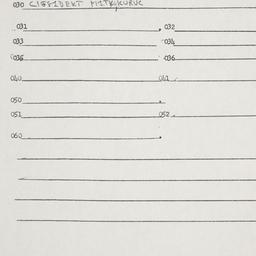 030
031 032
033 034
035 036
040 041
050
051 052
060